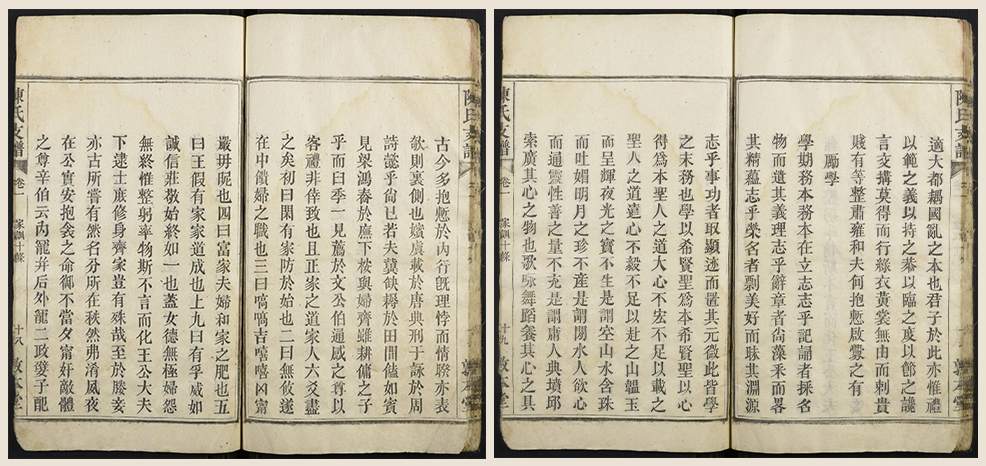 古今多抱慙於內行旣理悖而情睽亦表
欹則裏側也嬪虞載於唐典刑于詠於周
詩懿乎尙已若夫冀缺耨於田間饁如賓
見舉鴻舂於廡下桉與婦齊雖耕傭之子
乎而臼季一見薦於文公伯通感之尊以
客禮非倖致也且正家之道家人六爻盡
之矣初曰閑有家防於始也二曰無攸遂
在中饋婦之職也三曰嗃嗃吉嘻嘻凶甯
嚴毋昵也四曰富家夫婦和家之肥也五
曰王假有家家道成也上九曰有孚威如
誠信莊敬始終如一也蓋女德無極婦怨
無終惟整躬率物斯不言而化王公大夫
下逮士庶修身齊家豈有殊哉至於媵妾
亦古所嘗有然名分所在秩然弗淆夙夜
在公實安抱衾之命御不當夕甯奸敵體
之尊辛伯云內寵并后外寵二政嬖子配
陳氏支譜 卷一 家訓十條 十九 敦本堂
適大都耦國亂之本也君子於此亦惟禮
以範之義以持之恭以臨之度以節之讒
言交搆莫得而行綠衣黃裳無由而刺貴
賤有等整肅雍和夫何抱慙啟釁之有
勵學
學期務本務本在立志志乎記誦者採名
物而遺其義理志乎辭章者尙藻釆而畧
其精蘊志乎榮名者剽美好而昧其淵源
志乎事功者取顯迹而置其元微此皆學
之末務也學以希賢聖爲本希賢聖以心
得爲本聖人之道大心不宏不足以載之
聖人之道遠心不毅不足以赴之山韞玉
而呈輝夜光之寶不生是謂空山水含珠
而吐媚明月之珍不產是謂閑水人欲心
而通靈性善之量不充是謂庸人典墳邱
索廣其心之物也歌咏舞蹈養其心之具
陳氏支譜 卷一 家訓十條 十九 敦本堂